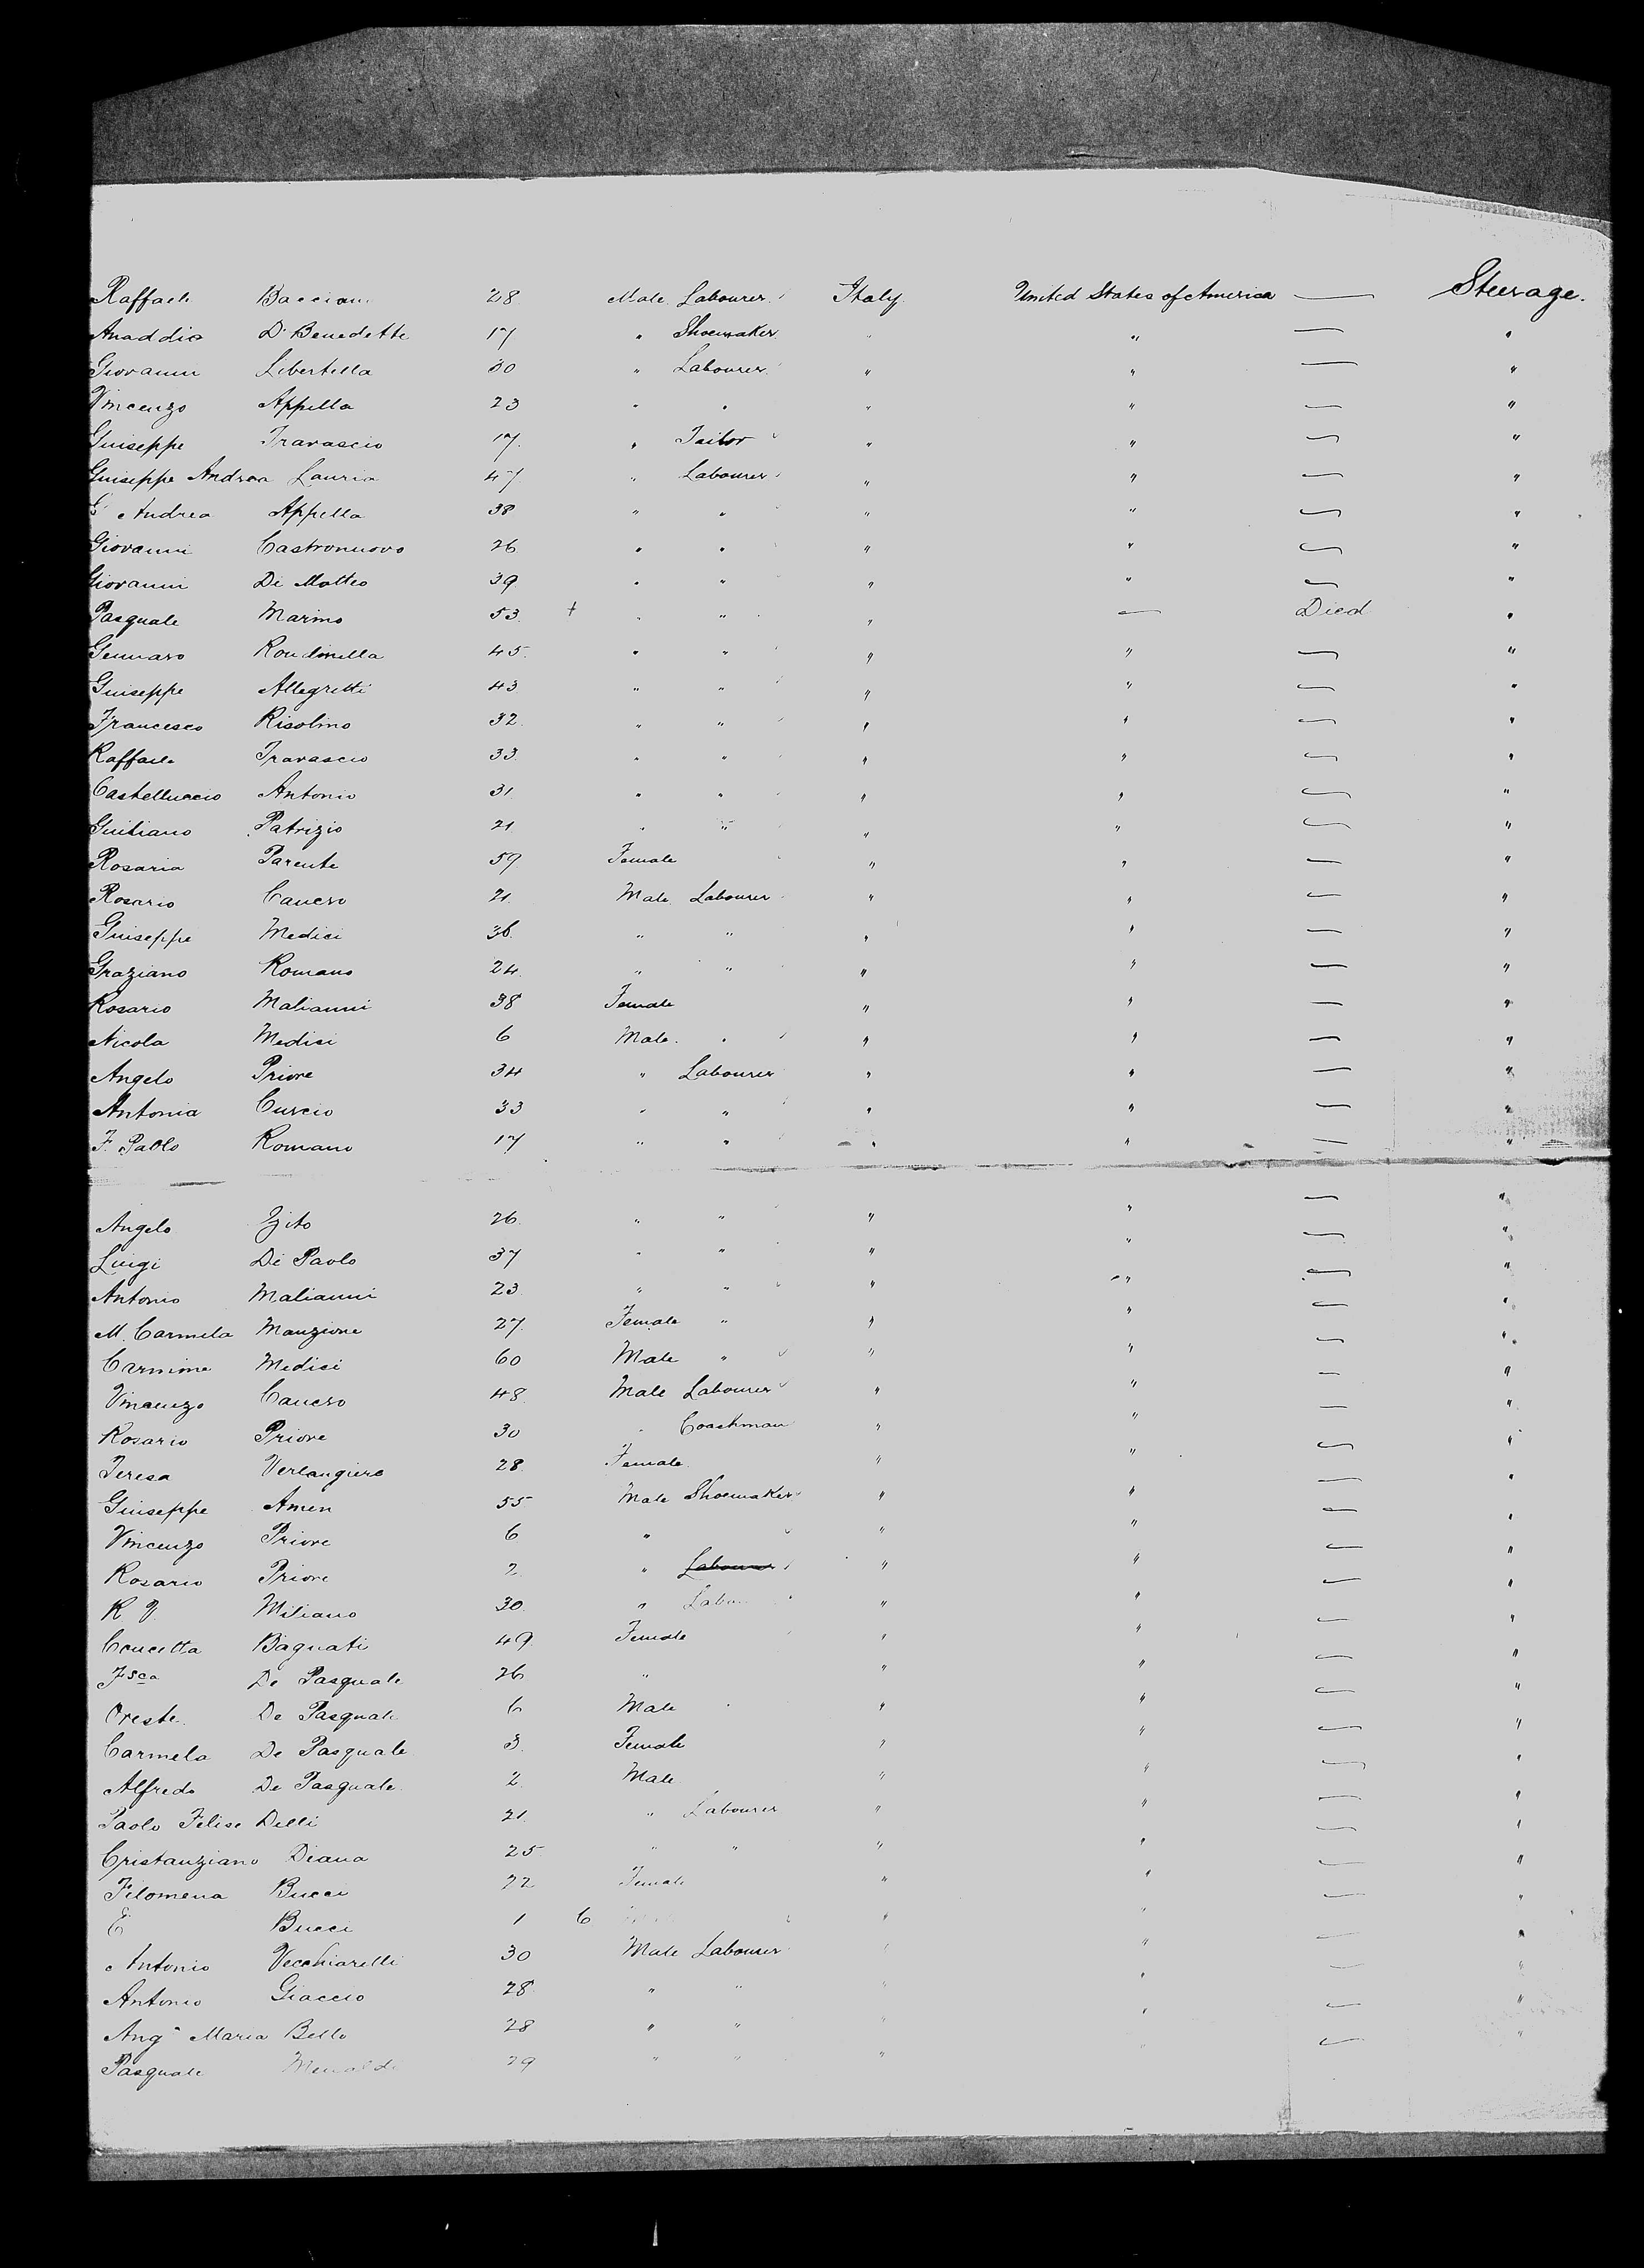 Raffaele 28 Male Labourer Italy United States of America — Steerage.
Anaddio Di Benedetto 17 " Shoemaker " " — "
Giovanni Libertella 30 " Labourer " " — "
Vincenzo Appella 23 " " " " — "
Guiseppe Travascio 17 " Tailor " " — "
Guiseppe Andrea Lauria 47 " Labourer " " — "
G Andrea Appella 38 " " " " — "
Giovanni Castronuovo 26 " " " " — "
Giovanni Di Matteo 39 " " " " — "
Pasquale Marino 53 + " " " — Died "
Gennaro Rondinella 45 " " " " — "
Guiseppe Allegretti 43 " " " " — "
Francesco Risolino 32 " " " " — "
Raffaele Travascio 33 " " " " — "
Castelluccio Antonio 31 " " " " — "
Guiliano Patrizio 21 " " " " — "
Rosaria Parente 59 Female " " — "
Rosario Cancro 21 Male Labourer " " — "
Guiseppe Medici 36 " " " " — "
Graziano Romano 24 " " " " — "
Rosario Malianni 38 Female " " — "
Nicola Medici 6 Male " " " — "
Angelo Priore 34 " Labourer " " — "
Antonia Curcio 33 " " " " — "
F. Paolo Romano 17 " " " " — "
Angelo 26 " " " " — "
Luigi Di Paolo 37 " " " " — "
Antonio Malianni 23 " " " " — "
M. Carmela Manzione 27 Female " " " — "
Carmine Medici 60 Male " " " — "
Vincenzo Cancro 48 Male Labourer " " — "
Rosario Priore 30 " Coachman " " — "
Teresa Verlangiere 28 Female " " — "
Giuseppe Amen 55 Male Shoemaker " " — "
Vincenzo Priore 6 " " " — "
Rosario Priore 2 " Labourer " " — "
R V. Miliano 30 " Labou " " — "
Concetta Bagnati 49 Female " " — "
Fsca De Pasquale 26 " " " — "
Oreste De Pasquale 6 Male " " " — "
Carmela De Pasquale 3 Female " " — "
Alfredo De Pasquale 2 Male " " — "
Paolo Felise Delli 21 " Labourer " " — "
Cristanziano Diana 25 " " " " — "
Filomena Bucci 22 Female " " — "
E Bucci 1 6 " " — "
Antonio Vecchiarelli 30 Male Labourer " " — "
Antonio Giaccio 28 " " " " — "
Ang Maria Bello 28 " " " " — "
Pasquale 29 " " " " — "